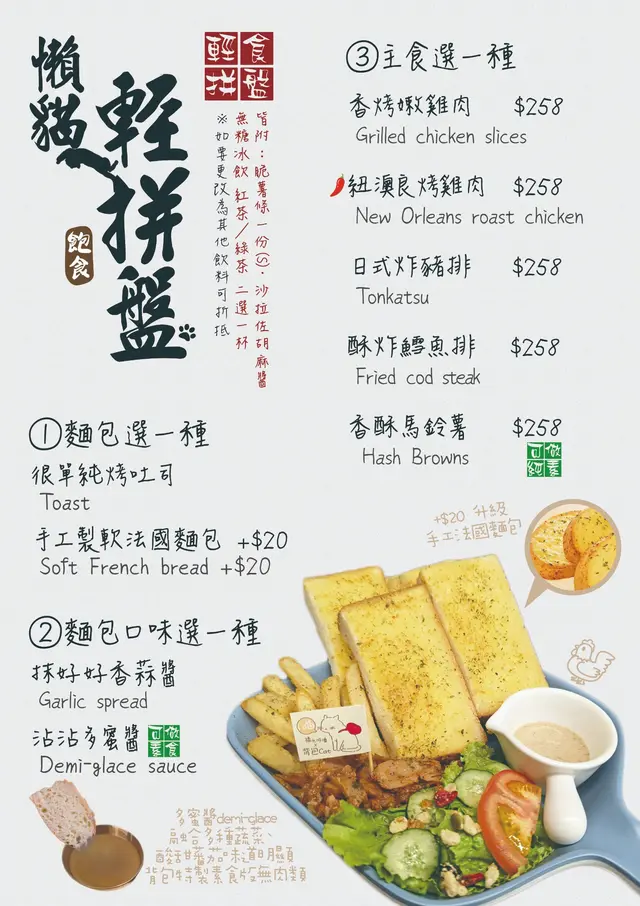 懶貓
輕拼盤
飽食
輕食
拼盤
皆附：脆薯條一份(S)·沙拉佐胡麻醬
無糖冰飲 紅茶/綠茶 二選一杯
※如要更改為其他飲料可折抵
①麵包選一種
很單純烤吐司
Toast
手工製軟法國麵包 +$20
Soft French bread +$20
②麵包口味選一種
抹好好香蒜醬
Garlic spread
沾沾多蜜醬 可做素食
Demi-glace sauce
多蜜醬demi-glace
融合多種蔬菜、
酸甜蕃茄味道明顯
背包特製素食版無肉類
③主食選一種
香烤嫩雞肉 $258
Grilled chicken slices
紐澳良烤雞肉 $258
New Orleans roast chicken
日式炸豬排 $258
Tonkatsu
酥炸鱈魚排 $258
Fried cod steak
香酥馬鈴薯 $258
Hash Browns
可做純素
+$20 升級
手工法國麵包
背包Cat